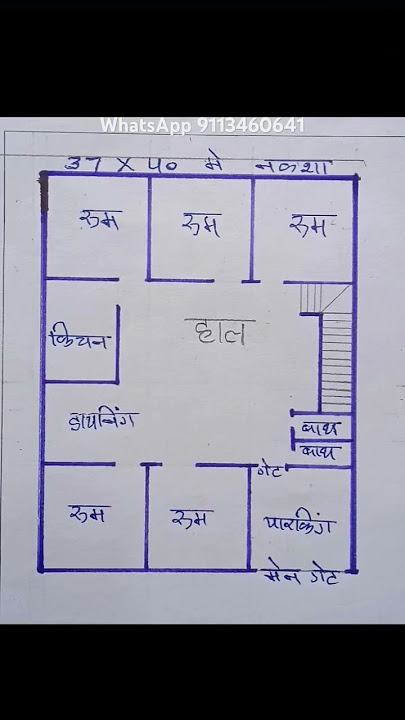 WhatsApp 9113460641
37 X 40 मे नकशा
रुम रुम रुम
किचन हाल
डायनिंग
बाथ
बाथ
गेट
रुम रुम पारकिंग
मेन गेट